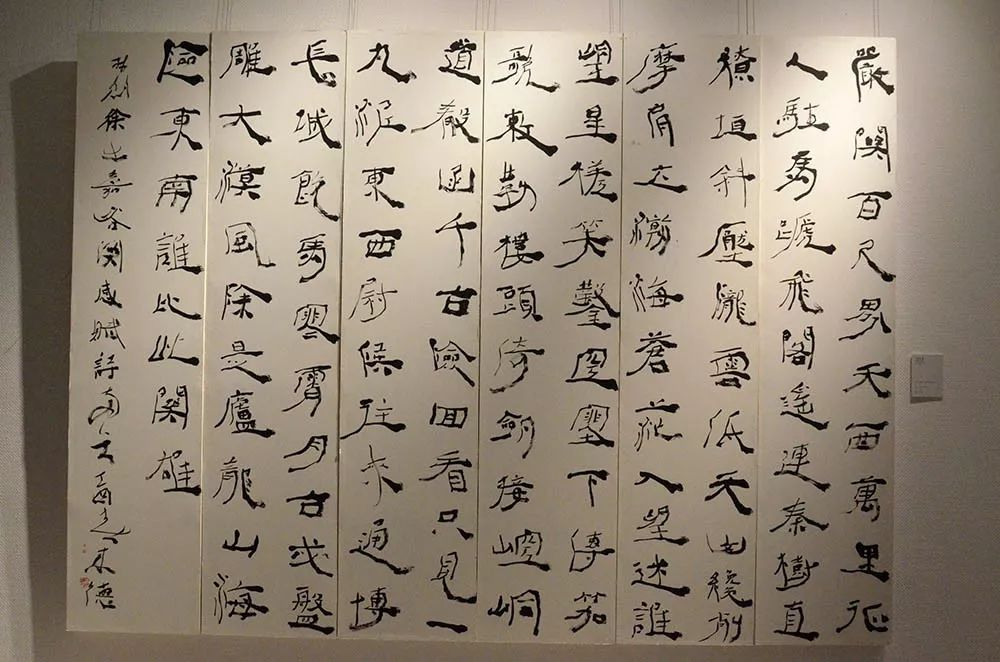 嚴關百尺界天西萬里征
人駐馬蹄飛閣遙連秦樹直
繚垣斜壓隴雲低天山巉削
摩肩立瀚海蒼茫入望迷誰
望星槎笑鑿空塞下傳笳
歌敕勒樓頭倚劍接崆峒
道殽函千古險回看只見一
丸泥東西尉候往來通博
長城飲馬寒宵月古戍盤
雕大漠風除是廬龍山海
險東南誰比此關雄
林則徐出嘉峪關感賦詩 來德